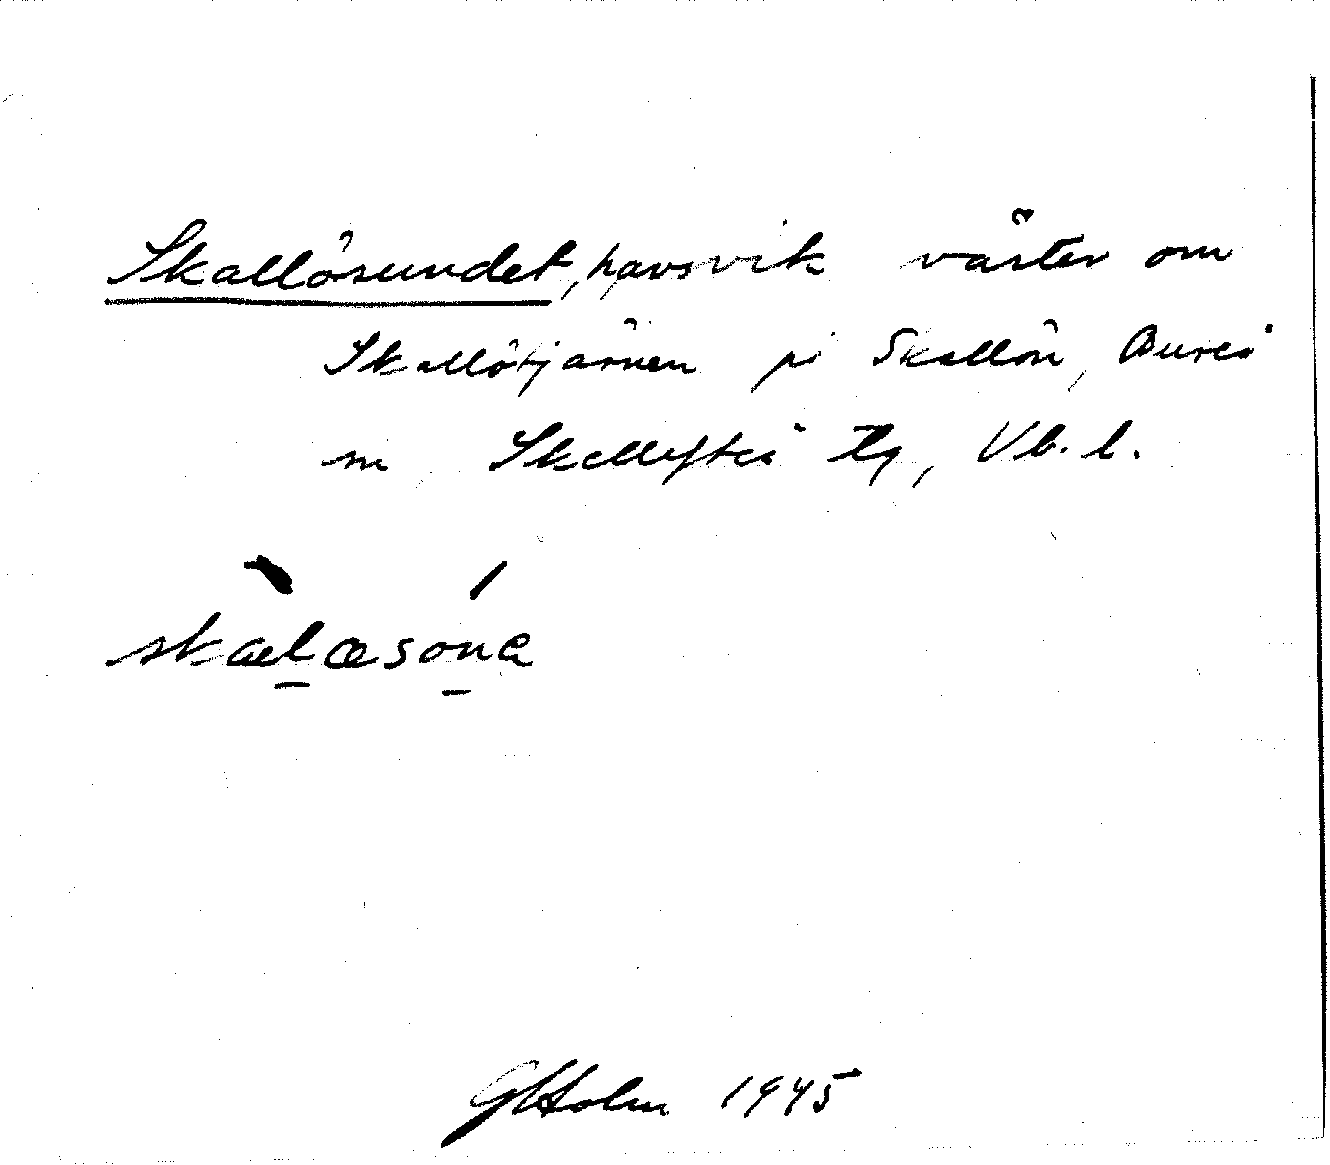 Skallösundet, havsvik väster om
Skallötjärnen på Skallön, Bureå
sn Skellefteå tg, Vb. l.
skæ̀læsóna
GHolm 1945